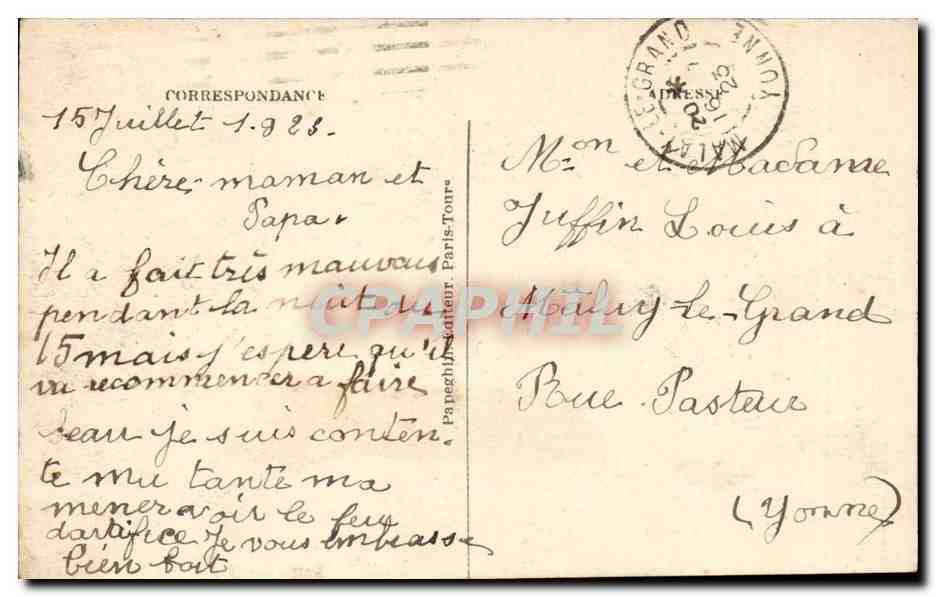 CORRESPONDANCE
15 Juillet 1923.
Chère maman et
Papa.
Il a fait très mauvais
pendant la nuit du
15 mais j'espere qu'il
va recommencer a faire
beau je suis conten-
te ma tante ma
mener voir le feu
dartifice Je vous embrasse
bien fort
Papeghin Editeur. Paris-Tours
ADRESSE
MALAY-LE-GRAND
YONNE
20
1923
Mon et Madame
Juffin Louis à
Mâlay-le-Grand
Rue Pasteur
(Yonne)
CPAPHIL